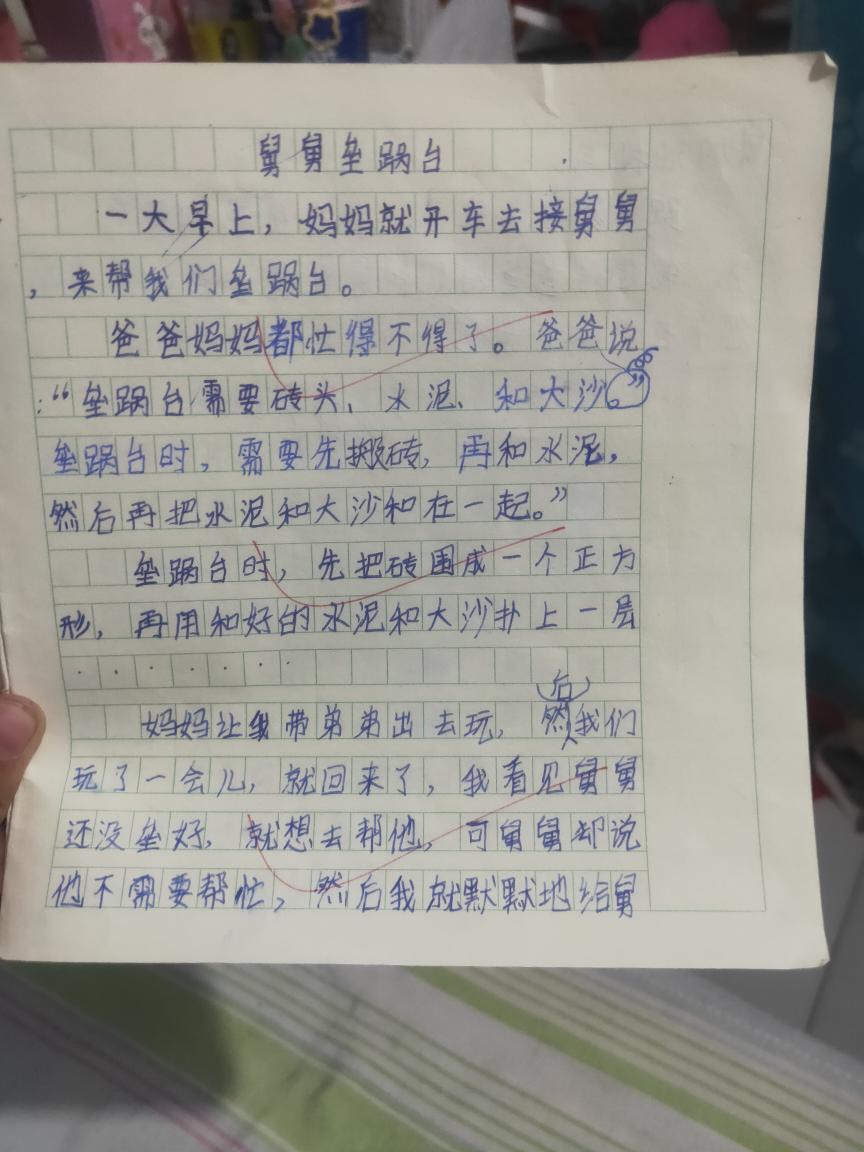 舅舅垒踻台
一大早上，妈妈就开车去接舅舅
，来帮我们垒踻台。
爸爸妈妈都忙得不得了。爸爸说
：“垒踻台需要砖头、水泥、和大沙。
垒踻台时，需要先搬砖，再和水泥，
然后再把水泥和大沙和在一起。”
垒踻台时，先把砖围成一个正方
形，再用和好的水泥和大沙扑上一层
......
妈妈让我带弟弟出去玩，然后我们
玩了一会儿，就回来了，我看见舅舅
还没垒好，就想去帮他，可舅舅却说
他不需要帮忙，然后我就默默地给舅